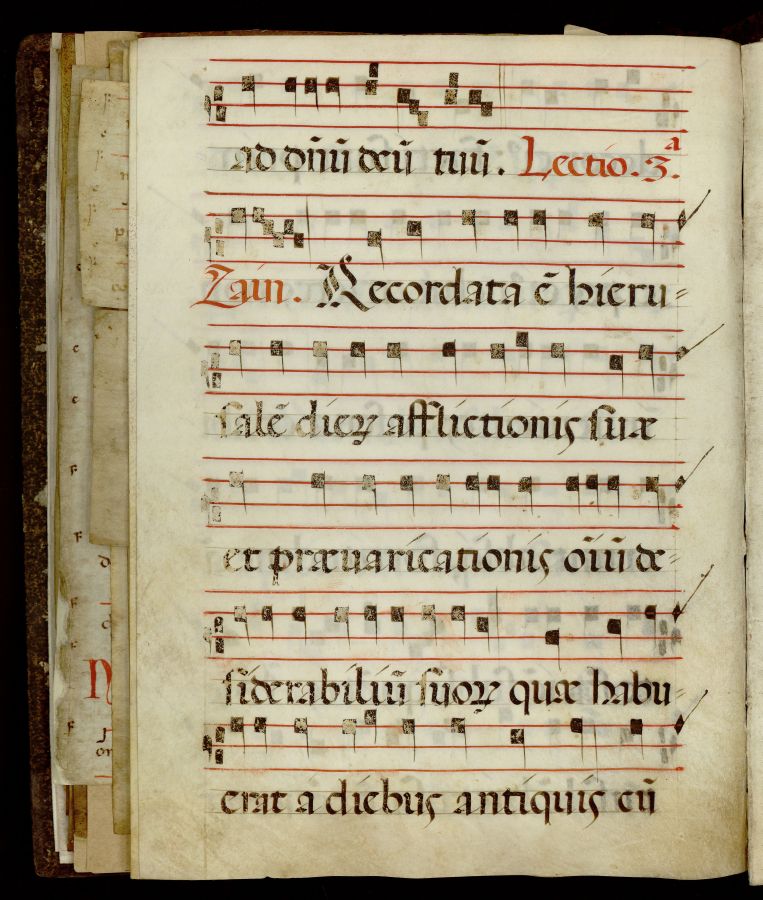 ad dn̄ū deū tuū. Lectio. 3.ᵃ
Zain. Recordata ē hieru⸗
salē dieꝝ afflictionis suæ
et præuaricationis oīū de⸗
siderabiliū suoꝝ quæ habu⸗
erat a diebus antiquis cū